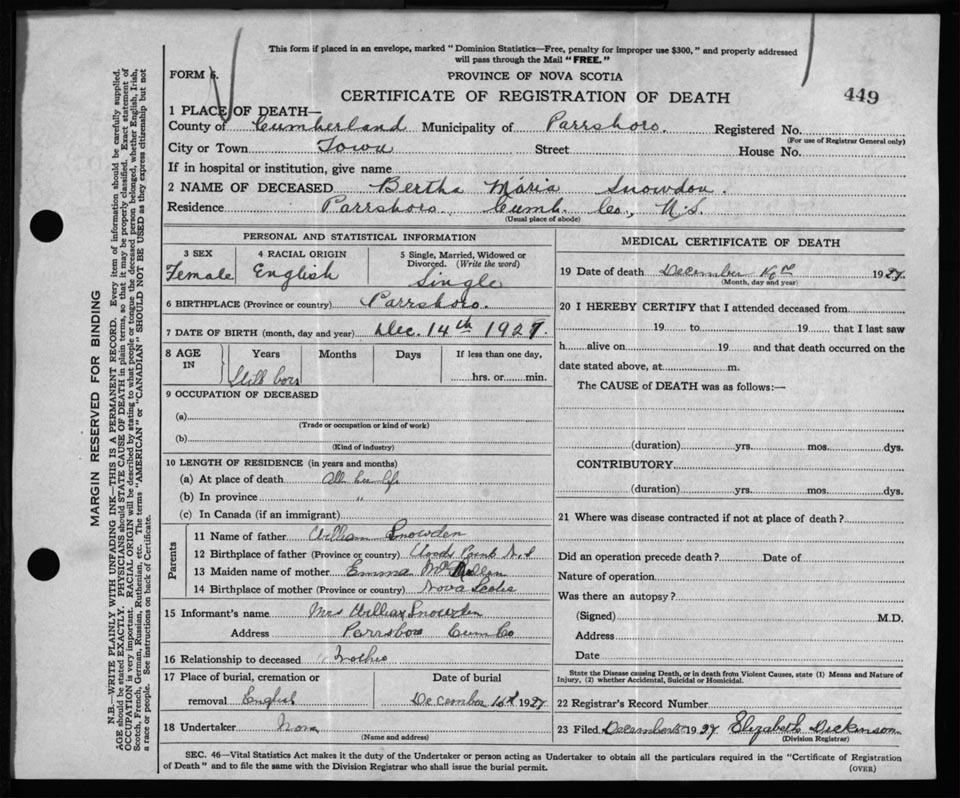 This form if placed in an envelope, marked "Dominion Statistics—Free, penalty for improper use $300," and properly addressed
will pass through the Mail "FREE."
FORM 6.
PROVINCE OF NOVA SCOTIA
CERTIFICATE OF REGISTRATION OF DEATH
449
1 PLACE OF DEATH—
County of Cumberland Municipality of Parrsboro. Registered No.
(For use of Registrar General only)
City or Town Town Street House No.
If in hospital or institution, give name
2 NAME OF DECEASED Bertha Maria Snowdon.
Residence Parrsboro Cumb. Co., N.S.
(Usual place of abode)
PERSONAL AND STATISTICAL INFORMATION
3 SEX Female
4 RACIAL ORIGIN English
5 Single, Married, Widowed or
Divorced. (Write the word)
Single
6 BIRTHPLACE (Province or country) Parrsboro.
7 DATE OF BIRTH (month, day and year) Dec. 14th 1927.
8 AGE
IN
Years Months Days If less than one day,
Still born hrs. or min.
9 OCCUPATION OF DECEASED
(a)
(Trade or occupation or kind of work)
(b)
(Kind of industry)
10 LENGTH OF RESIDENCE (in years and months)
(a) At place of death All her life
(b) In province "
(c) In Canada (if an immigrant)
Parents
11 Name of father William Snowden
12 Birthplace of father (Province or country) Woods Point N.S
13 Maiden name of mother Emma
14 Birthplace of mother (Province or country) Nova Scotia
15 Informant's name Mrs William Snowden
Address Parrsboro Cum Co
16 Relationship to deceased Mother
17 Place of burial, cremation or
removal English
Date of burial
December 1927
18 Undertaker None
(Name and address)
MEDICAL CERTIFICATE OF DEATH
19 Date of death December 1927.
(Month, day and year)
20 I HEREBY CERTIFY that I attended deceased from
19 to 19 that I last saw
h alive on 19 and that death occurred on the
date stated above, at m.
The CAUSE of DEATH was as follows:—
(duration) yrs. mos. dys.
CONTRIBUTORY
(duration) yrs. mos. dys.
21 Where was disease contracted if not at place of death?
Did an operation precede death? Date of
Nature of operation
Was there an autopsy?
(Signed) M.D.
Address
Date
State the Disease causing Death, or in death from Violent Causes, state (1) Means and Nature of
Injury, (2) whether Accidental, Suicidal or Homicidal.
22 Registrar's Record Number
23 Filed December 1927 Elizabeth Dickinson
(Division Registrar)
SEC. 46—Vital Statistics Act makes it the duty of the Undertaker or person acting as Undertaker to obtain all the particulars required in the "Certificate of Registration
of Death" and to file the same with the Division Registrar who shall issue the burial permit.
(OVER)
MARGIN RESERVED FOR BINDING
N.B.—WRITE PLAINLY WITH UNFADING INK—THIS IS A PERMANENT RECORD. Every item of information should be carefully supplied.
AGE should be stated EXACTLY. PHYSICIANS should STATE CAUSE OF DEATH in plain terms, so that it may be properly classified. Exact statement of
OCCUPATION is very important. RACIAL ORIGIN will be described by stating to what people or tongue the deceased person belonged, whether English, Irish,
Scotch, French, German, Russian, Ruthenian, etc. The terms "AMERICAN" or "CANADIAN" SHOULD NOT BE USED as they express citizenship but not
a race or people. See instructions on back of Certificate.